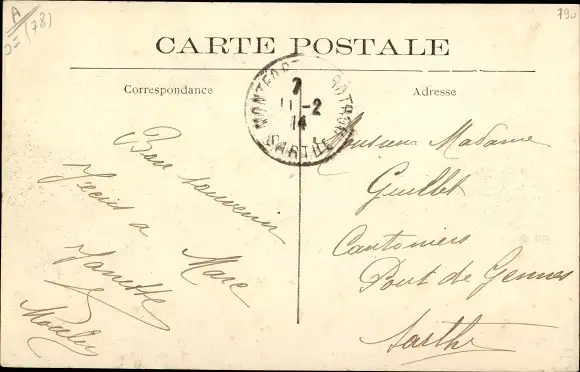 A
(78)
790
CARTE POSTALE
Correspondance
Adresse
MONTFORT ROTROU
7
11 -2
14
SARTHE
Bon souvenir
a Marc
Nanette
Monsieur Madame
Guillet
Cantoniers
Pont de Gennes
Sarthe